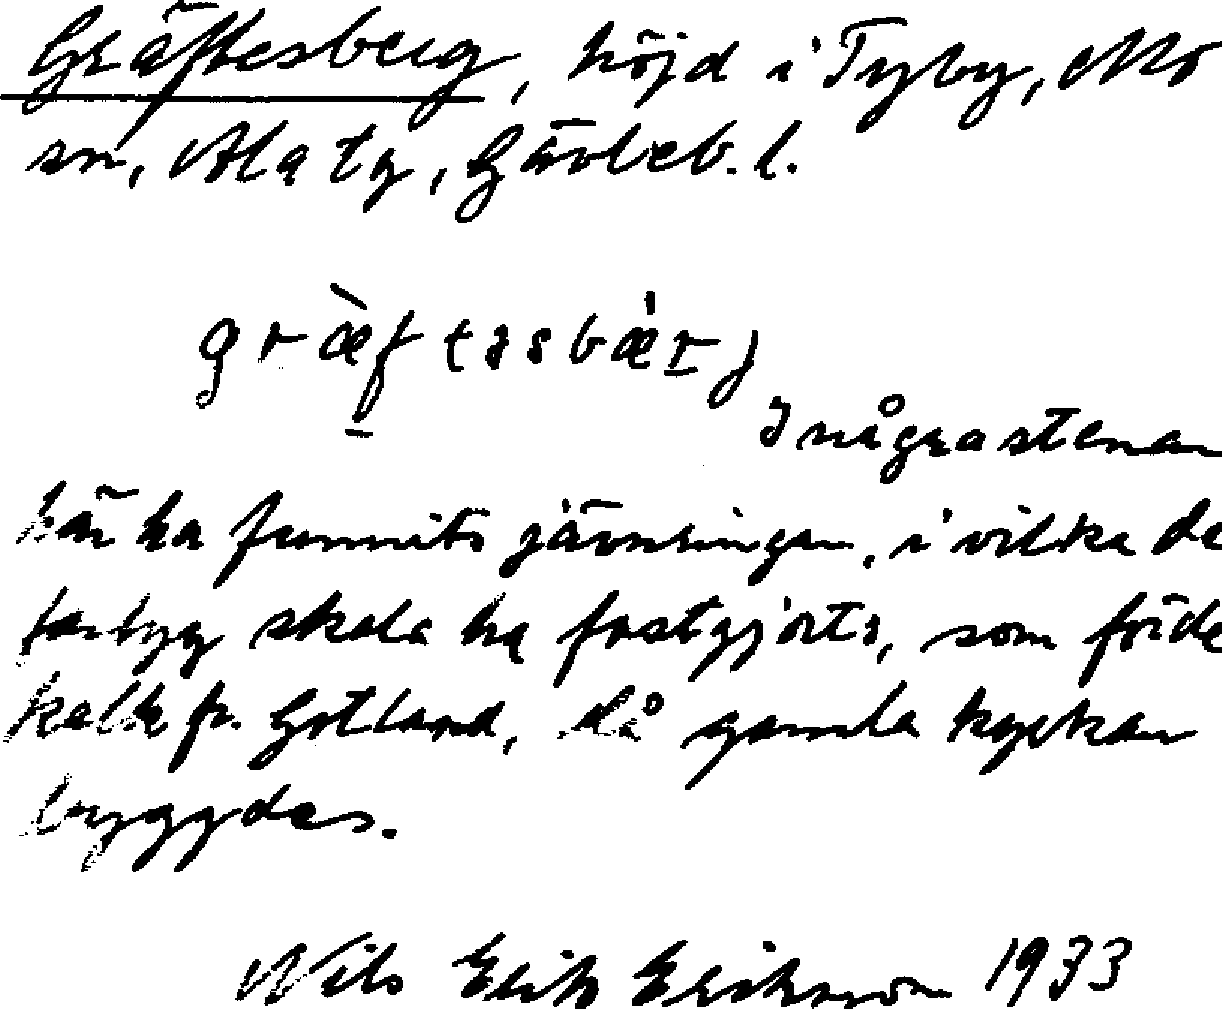 Gräftesberg, höjd i Tyby, Mo
sn, Ala tg, Gävleb. l.
græ̀ftəsbæ̀rj
I några stenar
här ha funnits järnringar, i vilka de
fartyg skola ha fastgjorts, som förde
kalk fr. Gotland, då gamla kyrkan
byggdes.
Nils Erik Eriksson 1933